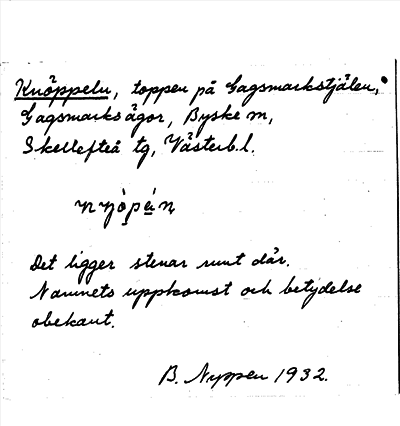 Knöppeln, toppen på Gagsmarkstjälen,
Gagsmarks ägor, Byske sn,
Skellefteå tg, Västerb. l.
Det ligger stenar runt där.
Namnets uppkomst och betydelse
obekant.
B. Nyppen 1932.